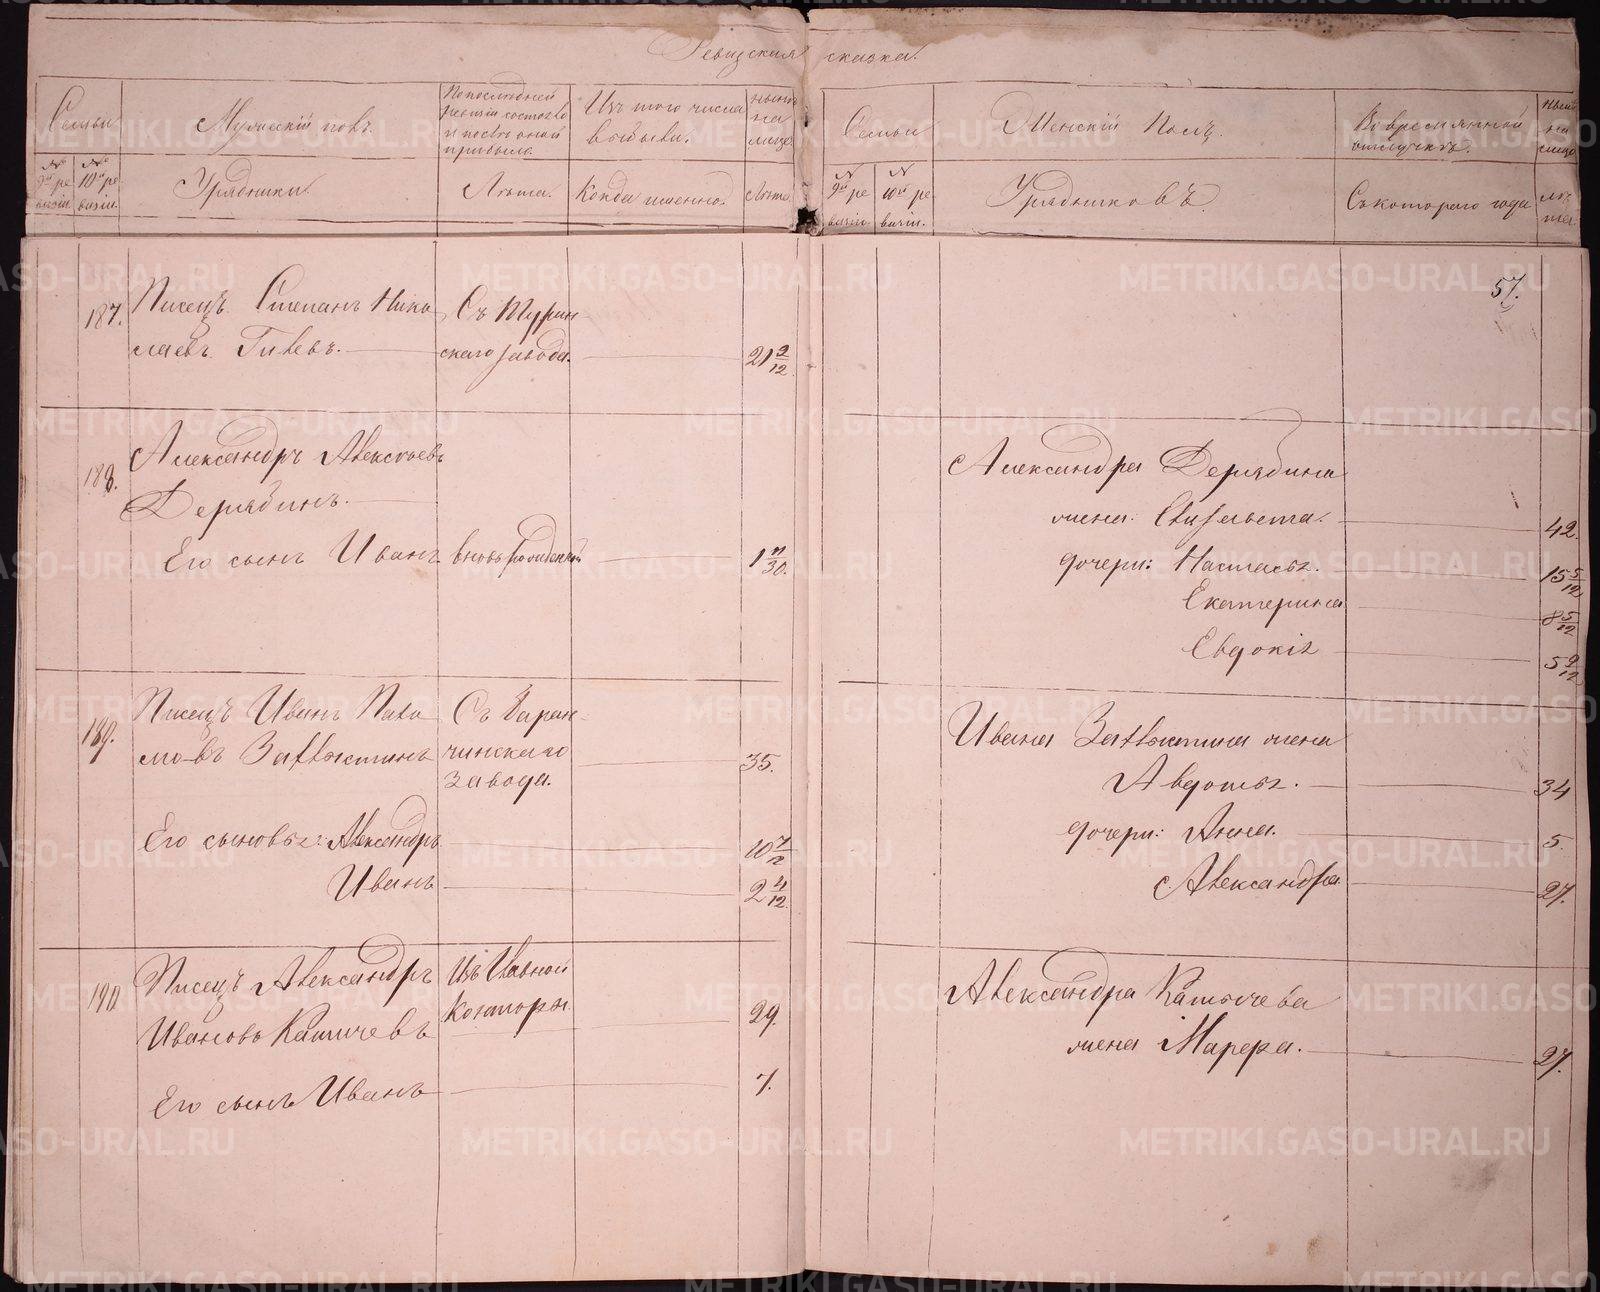 Ревизская сказка.
Семьи
Мужескій полъ.
По последней ревизіи состояло и после оной прибыло.
Изъ того числа выбыли.
ныне на лицо
Семьи
Женскій полъ.
Во временной отлучке.
ныне на лицо
№ 9й ре визіи
№ 10й ре визіи.
Урядники.
Лета.
Когда именно.
Лета
№ 9й ре визіи
№ 10й ре визіи.
Урядниковъ.
Съ котораго года
ле та
57.
187.
Писецъ Степанъ Нико
Съ Турин
лаевъ
скаго завода.
21 9/12
188.
Александръ Алексеевъ
Дерябинъ.
Его сынъ Иванъ
вновь рожденный
1 11/30.
Александра Дерябина
жена Елизавета.
42.
дочери: Настасья.
15 5/12
Екатерина
8 5/12
Евдокія
5 9/12
189.
Писецъ Иванъ
Съ Баран
чинскаго
завода.
35.
Его сыновья: Александръ
10 7/12
Иванъ
2 4/12.
Ивана жена
Авдотья.
34
дочери: Анна.
5.
Александра
27.
190
Писецъ Александръ
Изъ Главной
Ивановъ
Конторы
29.
Его сынъ Иванъ
7.
Александра
жена Марфа.
27.
METRIKI.GASO-URAL.RU